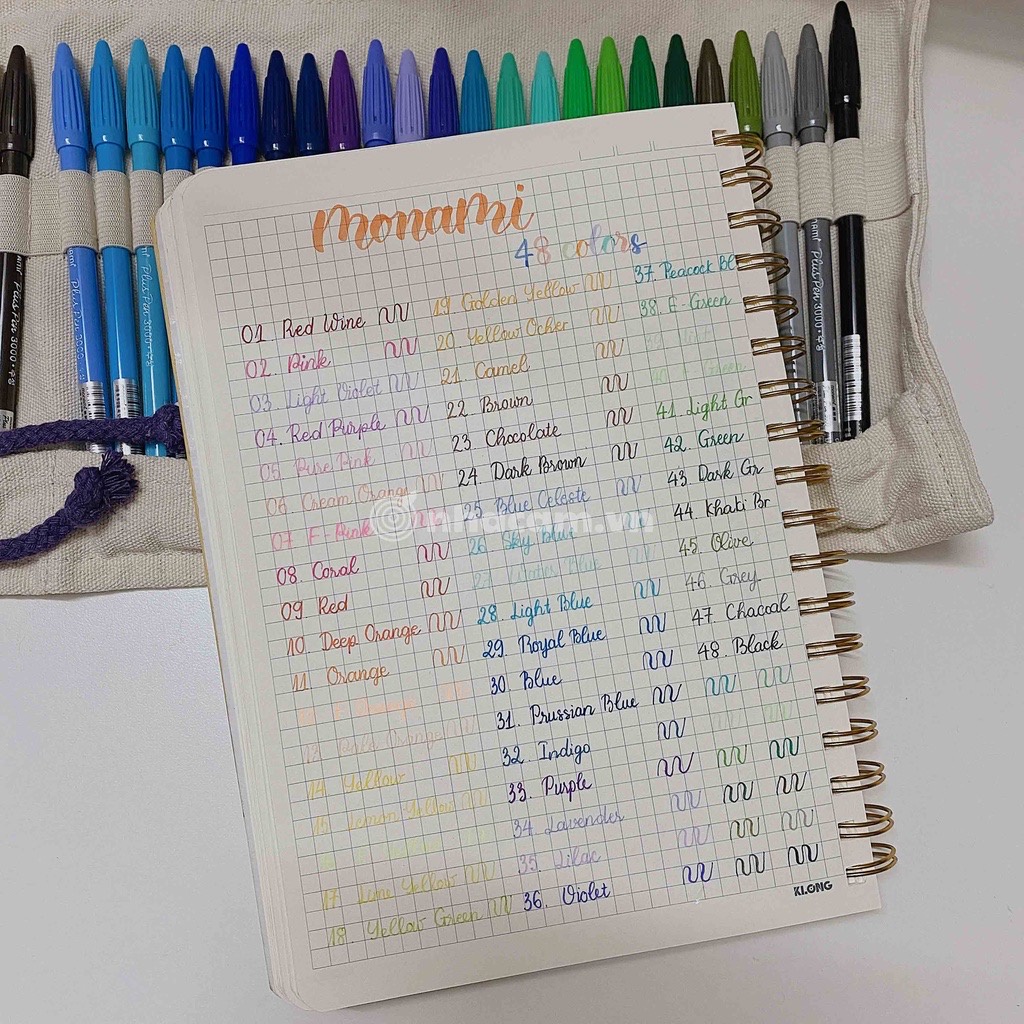 Monami
48 colors
01. Red Wine
02. Pink
03. Light Violet
04. Red Purple
05. Pure Pink
06. Cream Orange
07. F-Pink
08. Coral
09. Red
10. Deep Orange
11. Orange
13. Orange
14. Yellow
15. Lemon Yellow
17. Lime Yellow
18. Yellow Green
19. Golden Yellow
20. Yellow Ocher
21. Camel
22. Brown
23. Chocolate
24. Dark Brown
25. Blue Celeste
26. Sky Blue
27. Water Blue
28. Light Blue
29. Royal Blue
30. Blue
31. Prussian Blue
32. Indigo
33. Purple
34. Lavender
35. Lilac
36. Violet
37. Peacock Bl
38. E-Green
41. Light Gr
42. Green
43. Dark Gr
44. Khati Br
45. Olive
46. Grey
47. Chacoal
48. Black
KLONG
nhacam.vn
Plus Pen 3000
Plus Pen 3000
Plus Pen 3000
Plus Pen 3000